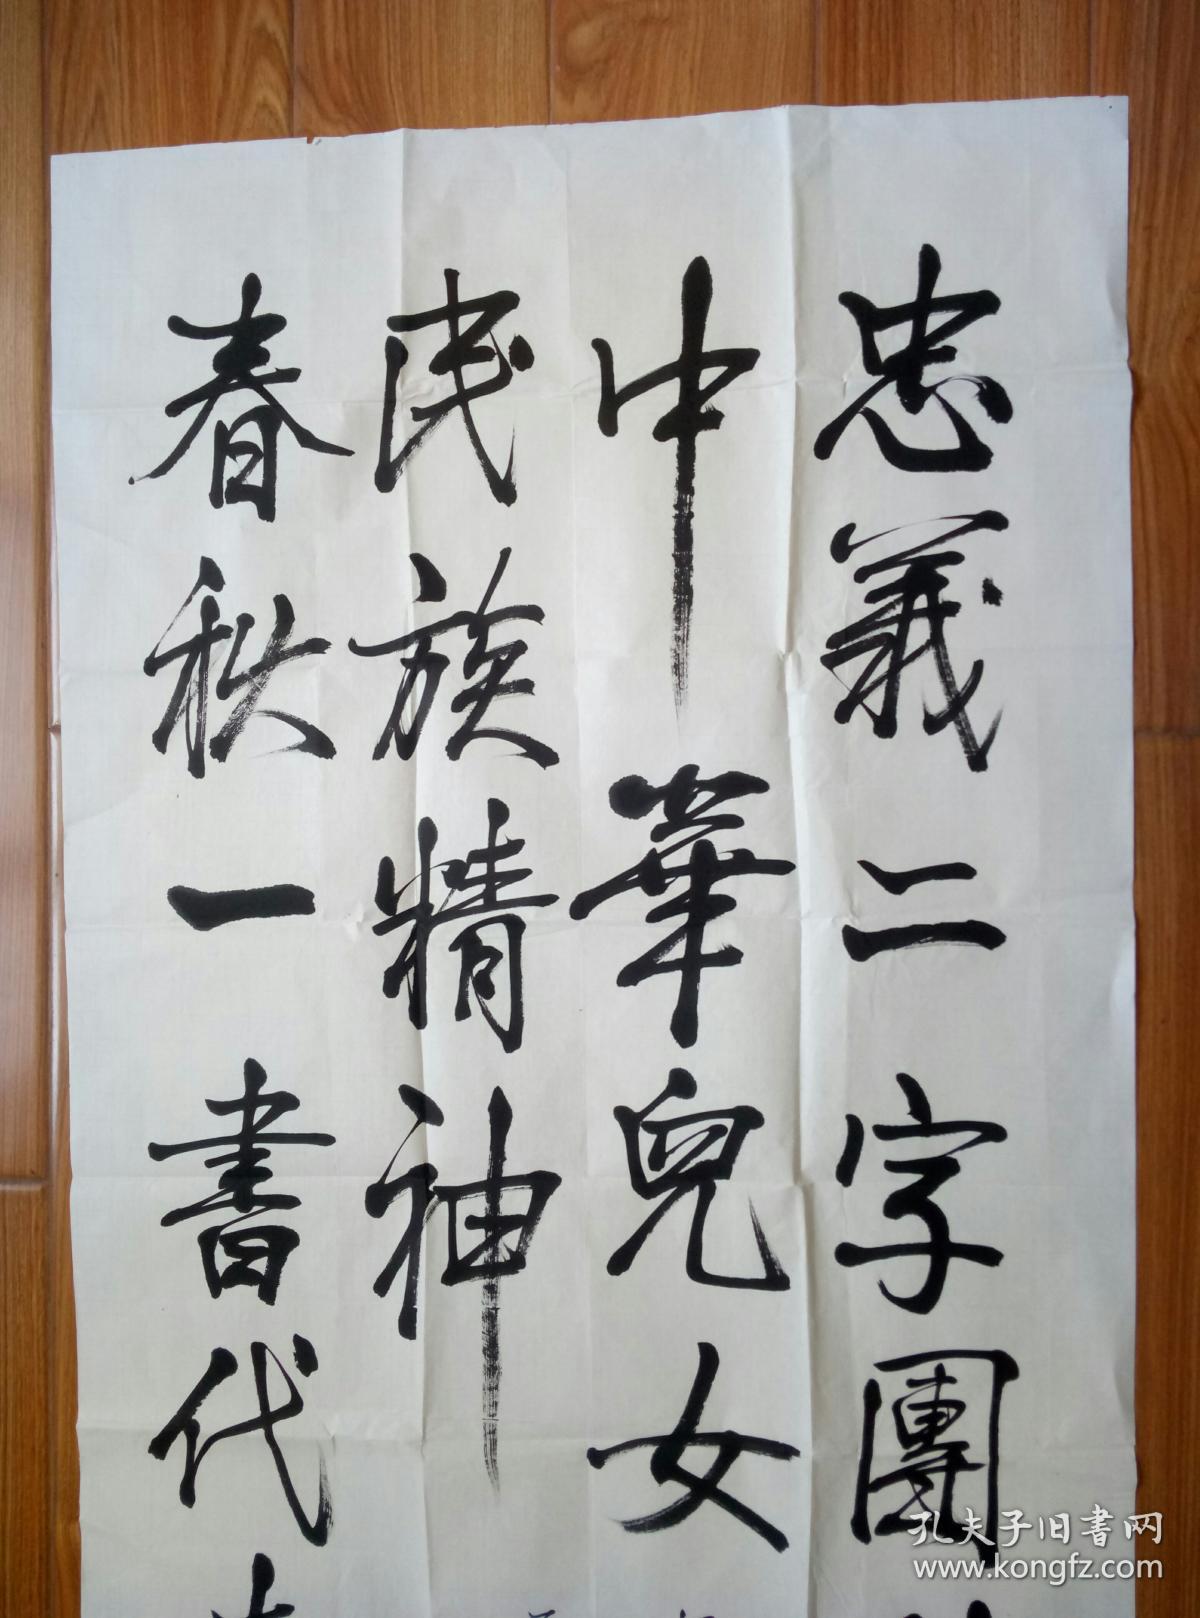 忠義二字團
中華兒女
民族精神
春秋一書代
孔夫子旧書网
www.kongfz.com